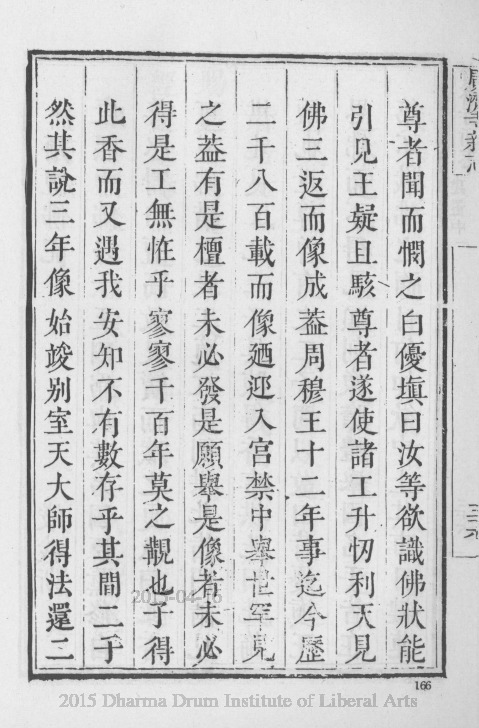 尊者聞而憫之白優塡曰汝等欲識佛狀能
引見王疑且駭尊者遂使諸工升忉利天見
佛三返而像成葢周穆王十二年事迄今歷
二千八百載而像廼迎入宫禁中舉世罕見
之葢有是檀者未必發是願舉是像者未必
得是工無恠乎寥寥千百年莫之覯也予得
此香而又遇我安知不有數存乎其間二于
然其說三年像始竣别室天大師得法還二
166
2015-04-16
2015 Dharma Drum Institute of Liberal Arts